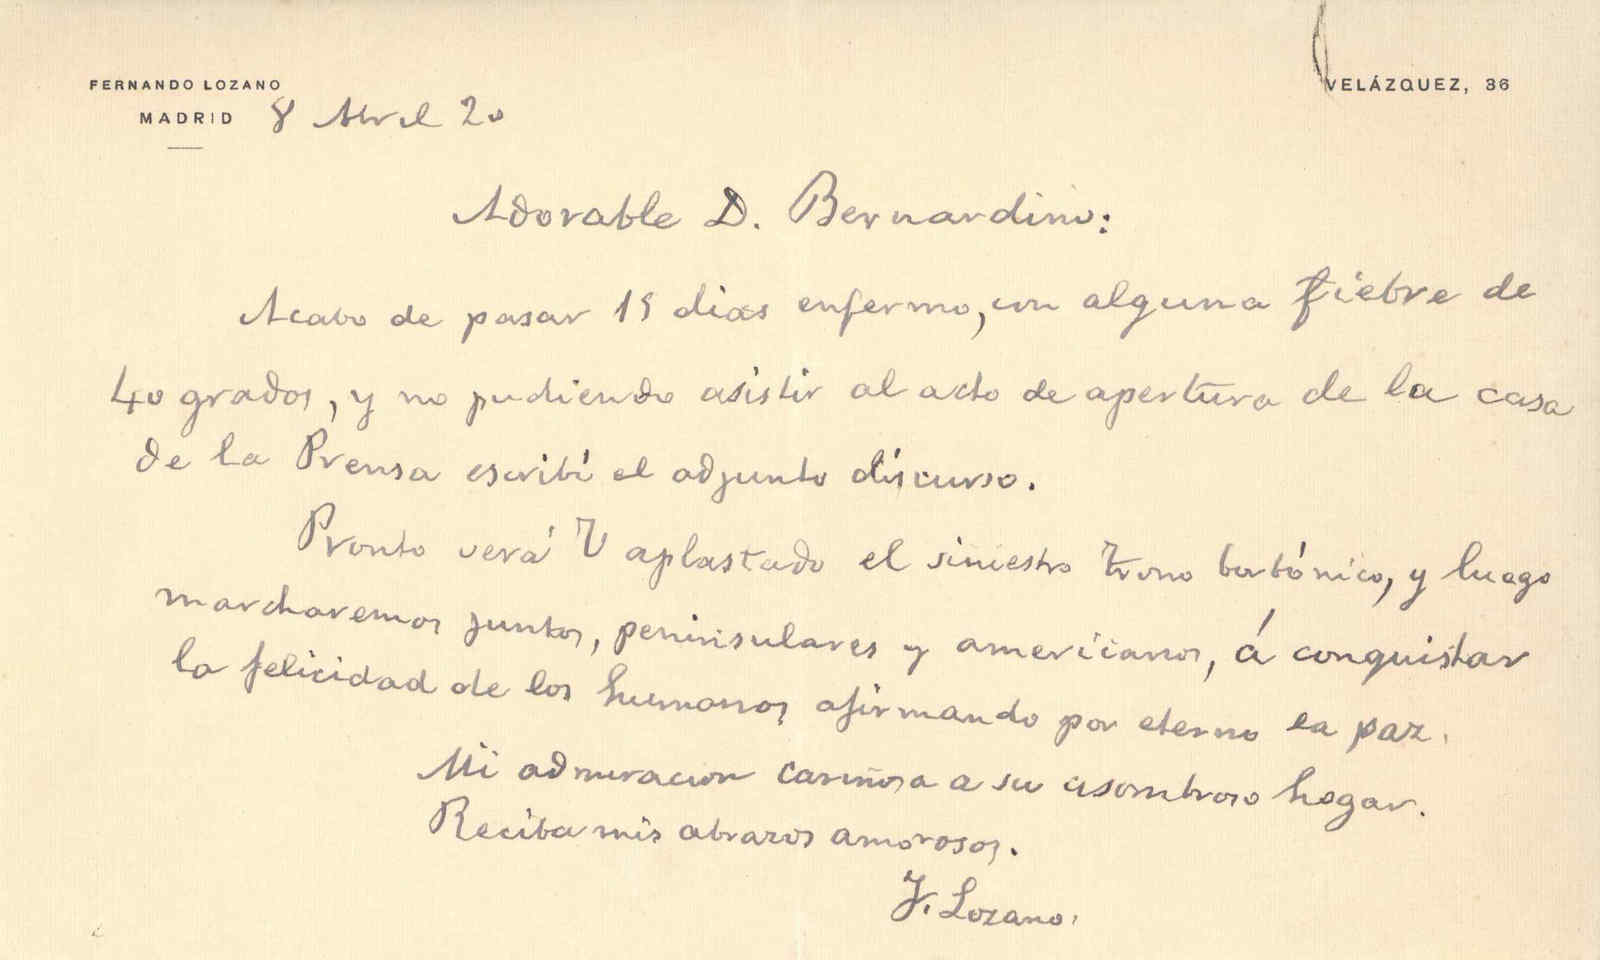 FERNANDO LOZANO
MADRID
VELÁZQUEZ, 36
8 Abril 20
Adorable D. Bernardino:
Acabo de pasar 15 dias enfermo, con alguna fiebre de
40 grados, y no pudiendo asistir al acto de apertura de la casa
de la Prensa escribí el adjunto discurso.
Pronto verá V aplastado el siniestro trono borbónico, y luego
marcharemos juntos, peninsulares y americanos, á conquistar
la felicidad de los humanos afirmando por eterno la paz.
Mi admiracion cariñosa a su asombroso hogar.
Reciba mis abrazos amorosos.
F. Lozano.